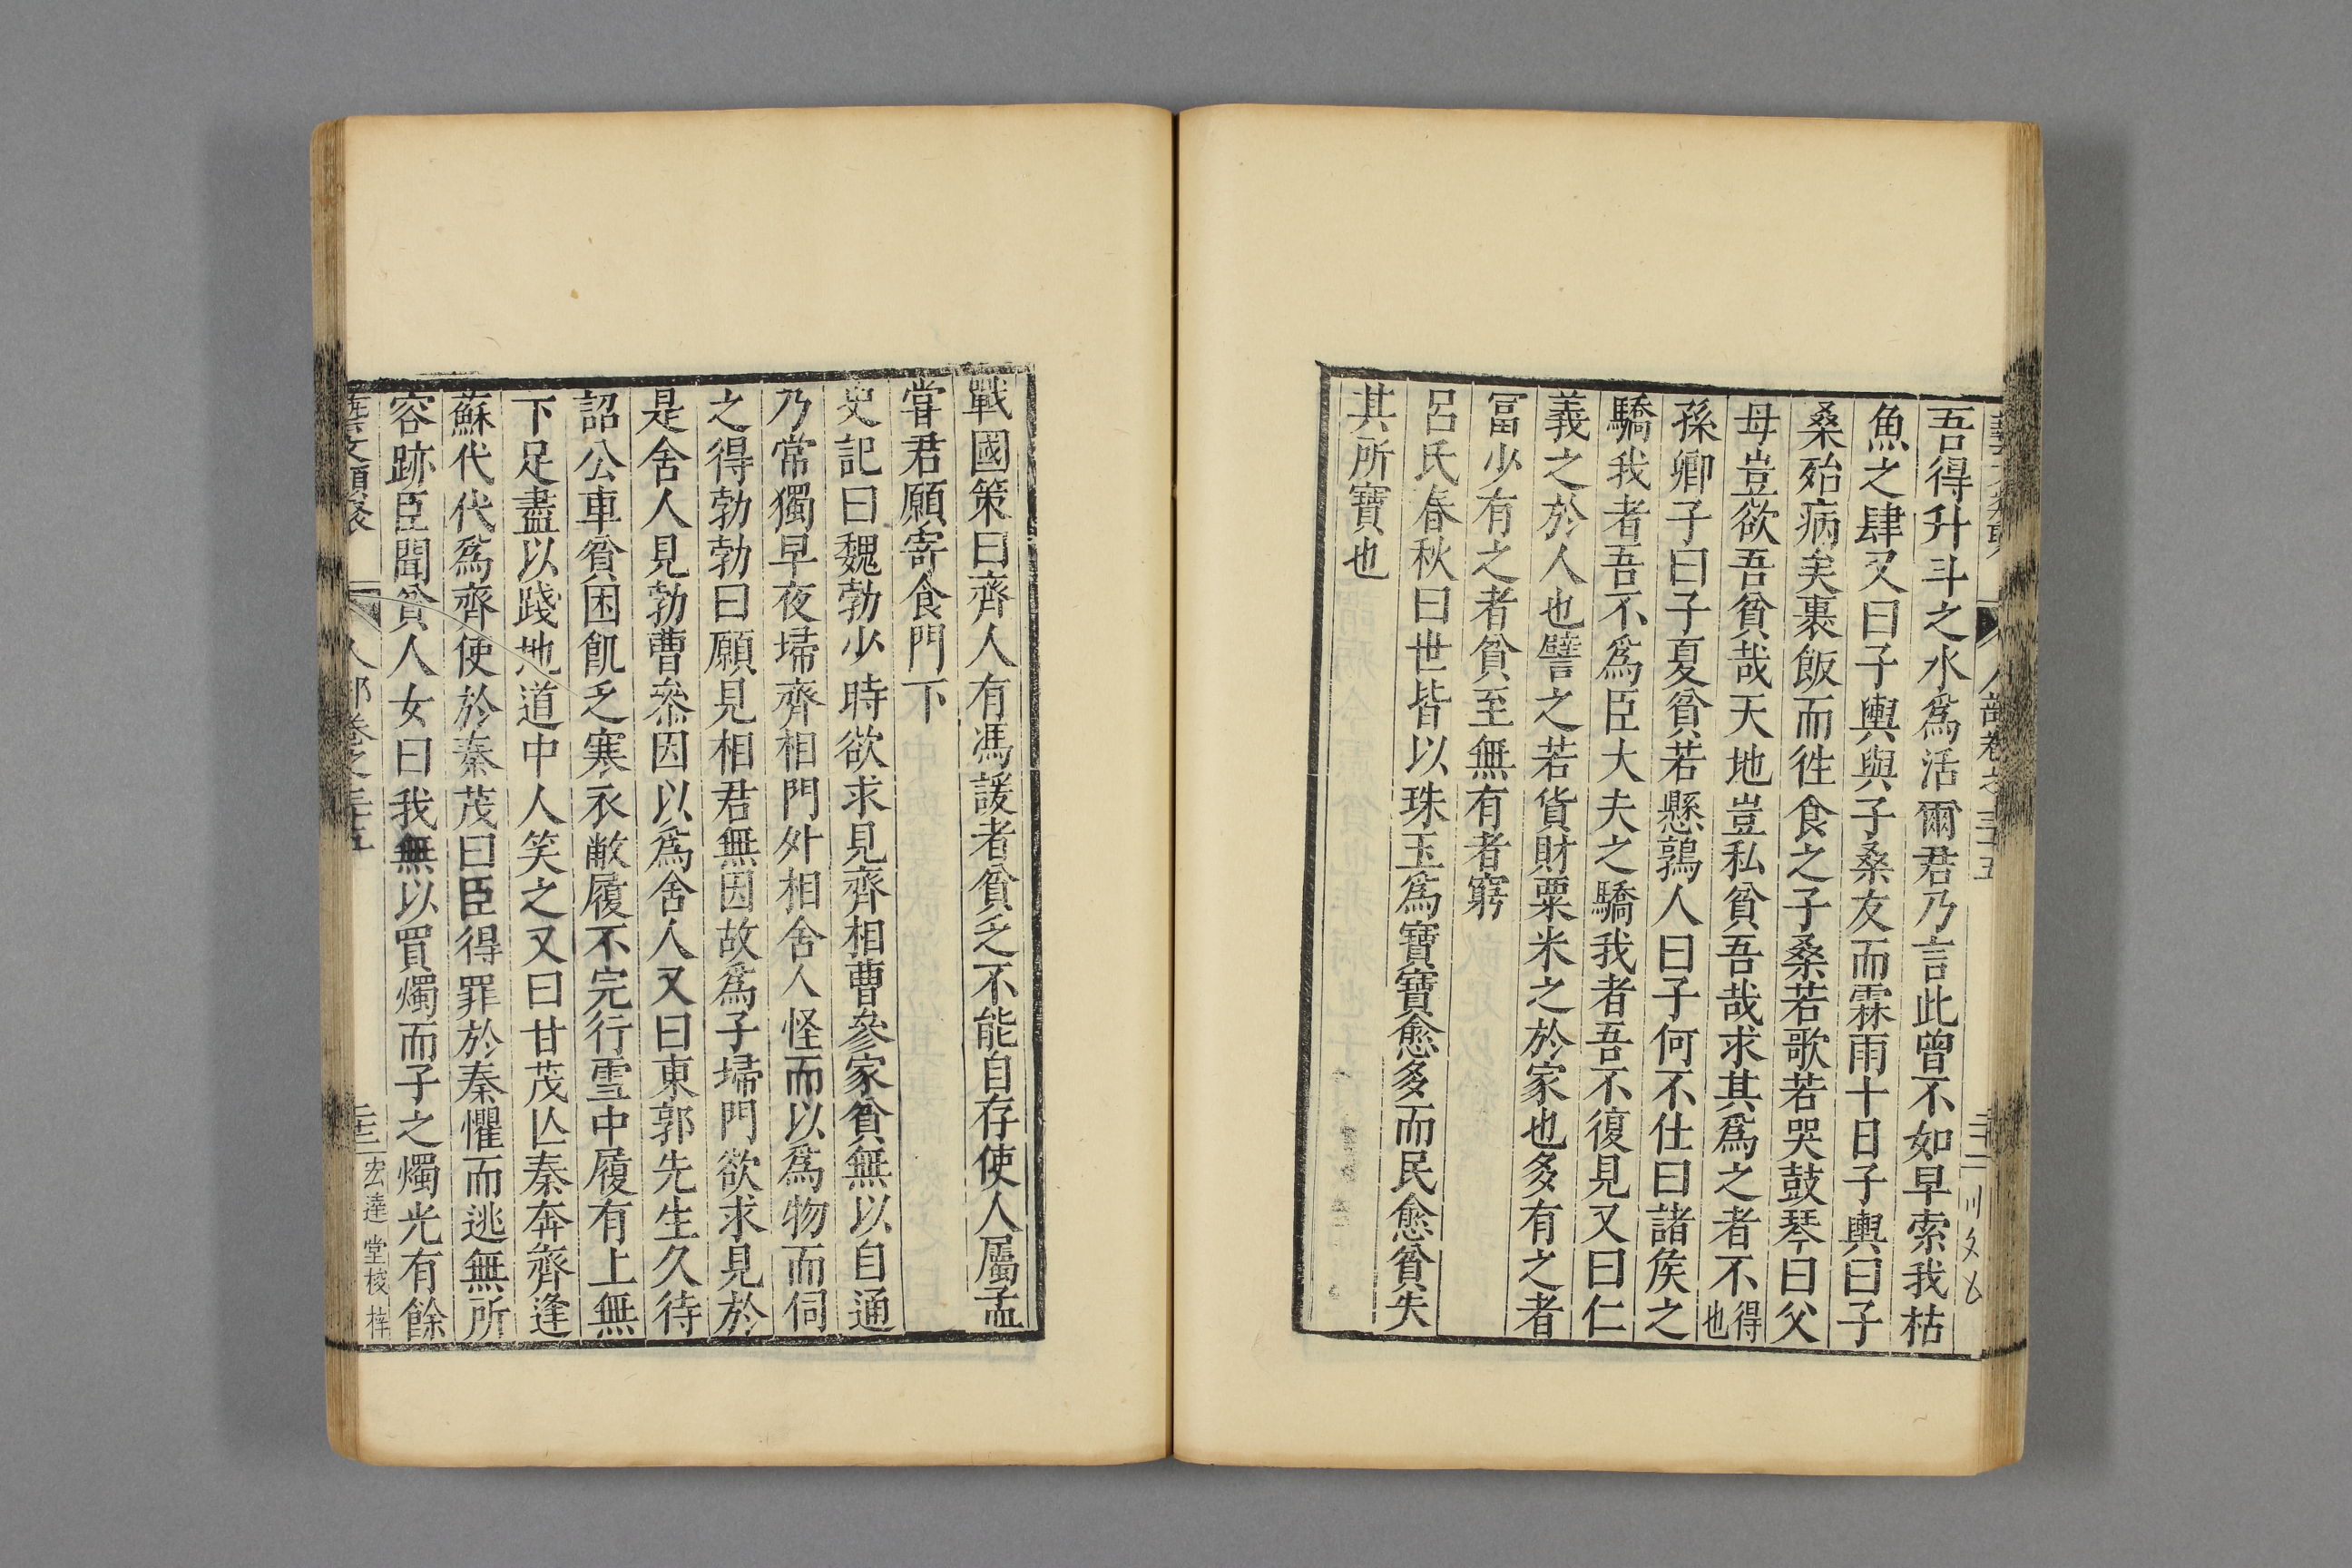 吾得升斗之水爲活爾君乃言此曾不如早索我枯
魚之肆又曰子輿與子桑友而霖雨十日子輿曰子
桑殆病矣裹飯而徃食之子桑若歌若哭鼓琴曰父
母豈欲吾貧哉天地豈私貧吾哉求其爲之者不得也
孫卿子曰子夏貧若懸鶉人曰子何不仕曰諸矦之
驕我者吾不爲臣大夫之驕我者吾不復見又曰仁
義之於人也譬之若貨財粟米之於家也多有之者
冨少有之者貧至無有者窮
呂氏春秋曰世皆以珠玉爲寶寶愈多而民愈貧失
其所寶也
戰國策曰齊人有馮諼者貧乏不能自存使人屬孟
嘗君願寄食門下
史記曰魏勃少時欲求見齊相曹參家貧無以自通
乃常獨早夜埽齊相門外相舍人怪而以爲物而伺
之得勃勃曰願見相君無因故爲子埽門欲求見於
是舍人見勃曹叅因以爲舍人又曰東郭先生久待
詔公車貧困飢乏寒衣敝履不完行雪中履有上無
下足盡以踐地道中人笑之又曰甘茂亾秦奔齊逢
蘇代代爲齊使於秦茂曰臣得罪於秦懼而逃無所
容跡臣聞貧人女曰我無以買燭而子之燭光有餘
藝文類聚 人部卷之三十五 宏達堂校梓